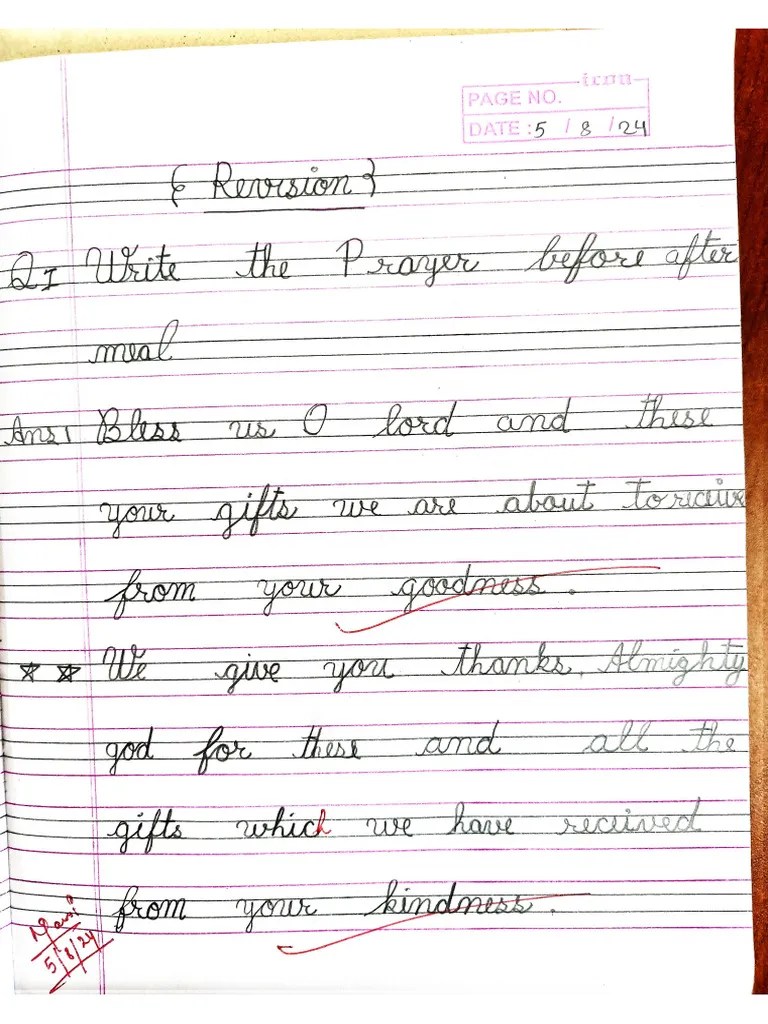 icon
PAGE NO.
DATE : 5 / 8 / 24
{ Revision }
Q1 Write the Prayer before after
meal
Ans1 Bless us O lord and these
your gifts we are about to receive
from your goodness.
We give you thanks, Almighty
god for these and all the
gifts which we have received
from your kindness.
5/8/24